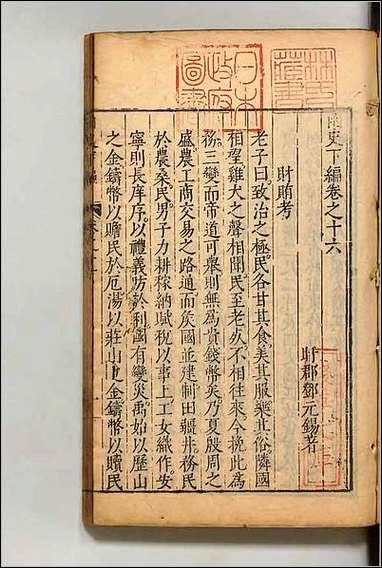 函史下編卷之十六
盱郡鄧元錫著
財賄考
老子曰致治之極民各甘其食美其服樂其俗隣國
相望雞犬之聲相聞民至老死不相往來今挽此為
務三變而帝道可舉則無為貴錢幣矣乃夏殷周之
盛農工商交易之路通而矦國並建制田疆井務民
於農桑民男子力耕稼納賦稅以事上工女織作安
寧則長庠序以禮義防於利國有變災禹始以歷山
之金鑄幣以贖民於厄湯以莊山之金鑄幣以贖民
日本
政府
圖書